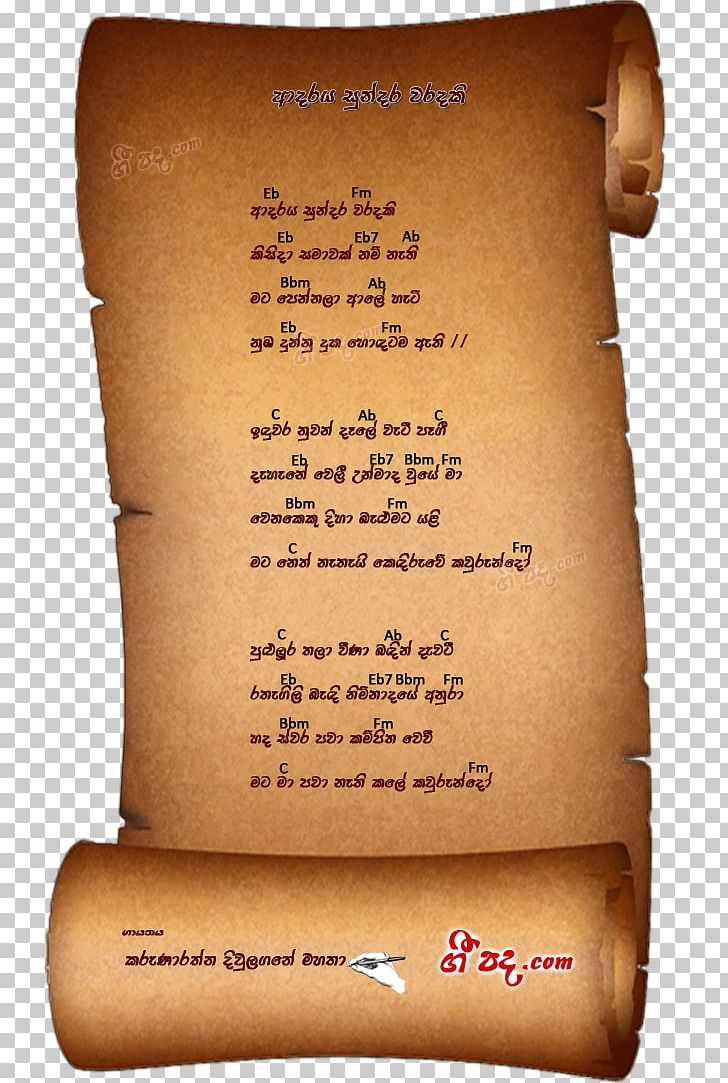 ආදරය සුන්දර වරදකි
ගී පද.com
Eb Fm
ආදරය සුන්දර වරදකි
Eb Eb7 Ab
කිසිදා සමාවක් නම් නැති
Bbm Ab
මට පෙන්නලා ආලේ හැටි
Eb Fm
නුඹ දුන්නු දුක හොඳටම ඇති //
ගී පද.com
C Ab C
ඉඳුවර නුවන් දෑලේ වැටී පෑගී
Eb Eb7 Bbm Fm
දෑහැනේ වෙලී උන්මාද වූයේ මා
Bbm Fm
වෙනකෙකු දිහා බැළුමට යළි
C Fm
මට නෙත් නැතැයි කෙඳිරුවේ කවුරුන්දෝ
ගී පද.com
C Ab C
පුළුලූර තලා වීණා බඳින් දැවටී
Eb Eb7 Bbm Fm
රතැඟිලි බැඳි නිම්නාදයේ අනුරා
Bbm Fm
හද ස්වර පවා කම්පිත වෙවී
C Fm
මට මා පවා නැති කලේ කවුරුන්දෝ
ගායනය
කරුණාරත්න දිවුලගනේ මහතා
ගී පද.com